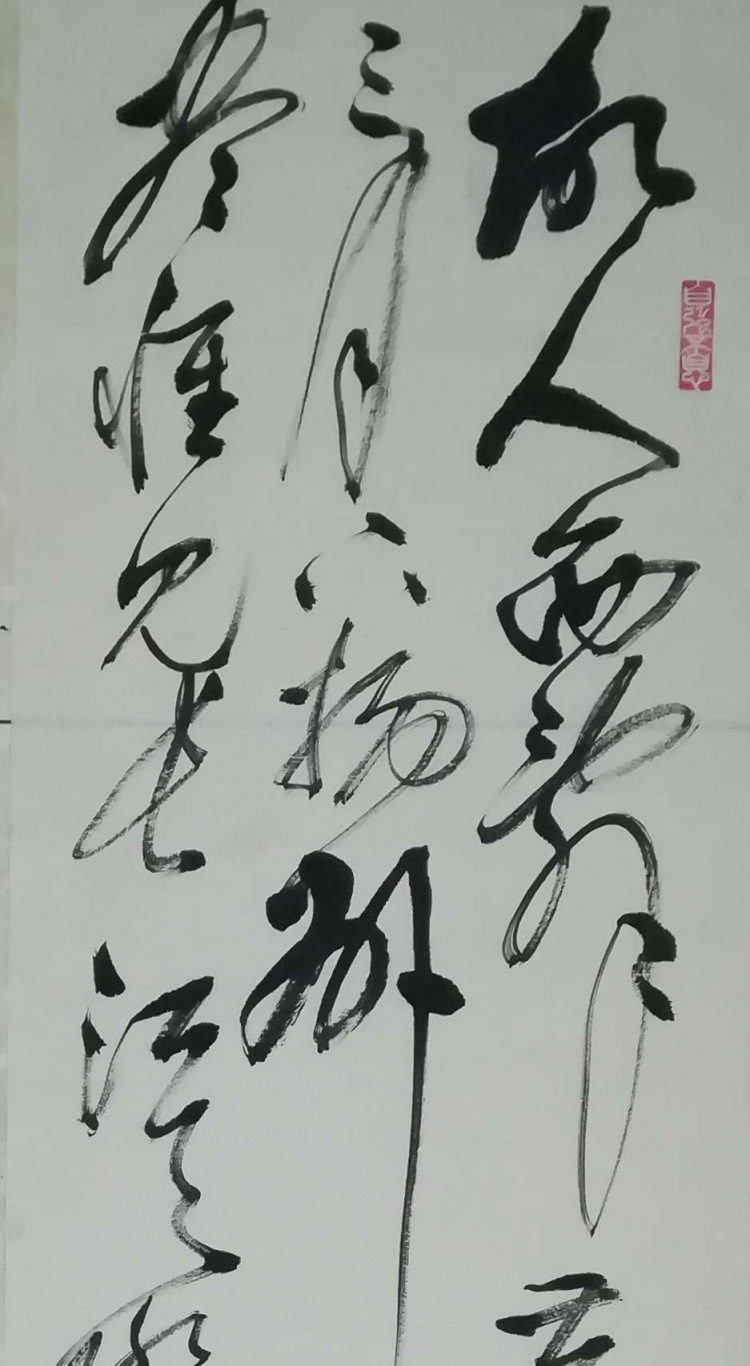 故人西辞
三月下扬州
尽惟见长江天